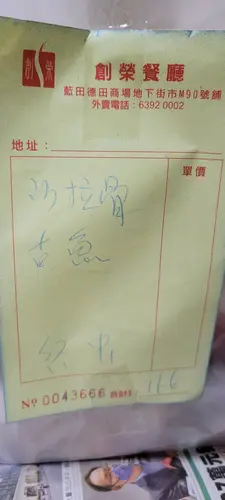 創榮
創榮餐廳
藍田德田商場地下街市M90號舖
外賣電話：6392 0002
地址：
單價
沙拉骨
吉魚
Nº 0043666
116